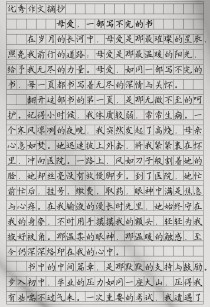 优秀作文摘抄
母爱,一部写不完的书
在岁月的长河中,母爱是那最璀璨的星辰,
照亮我前行的道路。母爱是那最温暖的阳光,
给予我无尽的力量。母爱,如同一部写不完的
书,每一页都书写着无尽的深情与关怀。
翻开这部书的第一页,是那无微不至的呵
护。记得小时候,我体质较弱,常常生病。一
个寒风凛冽的夜晚,我突然发起了高烧。母亲
心急如焚,她迅速披上外套,将我紧紧裹在怀
里,冲向医院。一路上,风如刀子般刮着她的
脸,她却丝毫没有放慢脚步。到了医院,她忙
前忙后,挂号、缴费、取药,眼神中满是焦急
与心疼。在我输液的漫长时光里,她始终守在
我的身旁,不时用手摸摸我的额头,轻轻为我
掖好被角。那温柔的眼神,那温暖的触感,至
今仍深深烙印在我的心中。
书中的中间篇章,是那默默的支持与鼓励。
步入初中,学业的压力如同一座大山,压得我
有些喘不过气来。一次重要的考试,我遭遇了